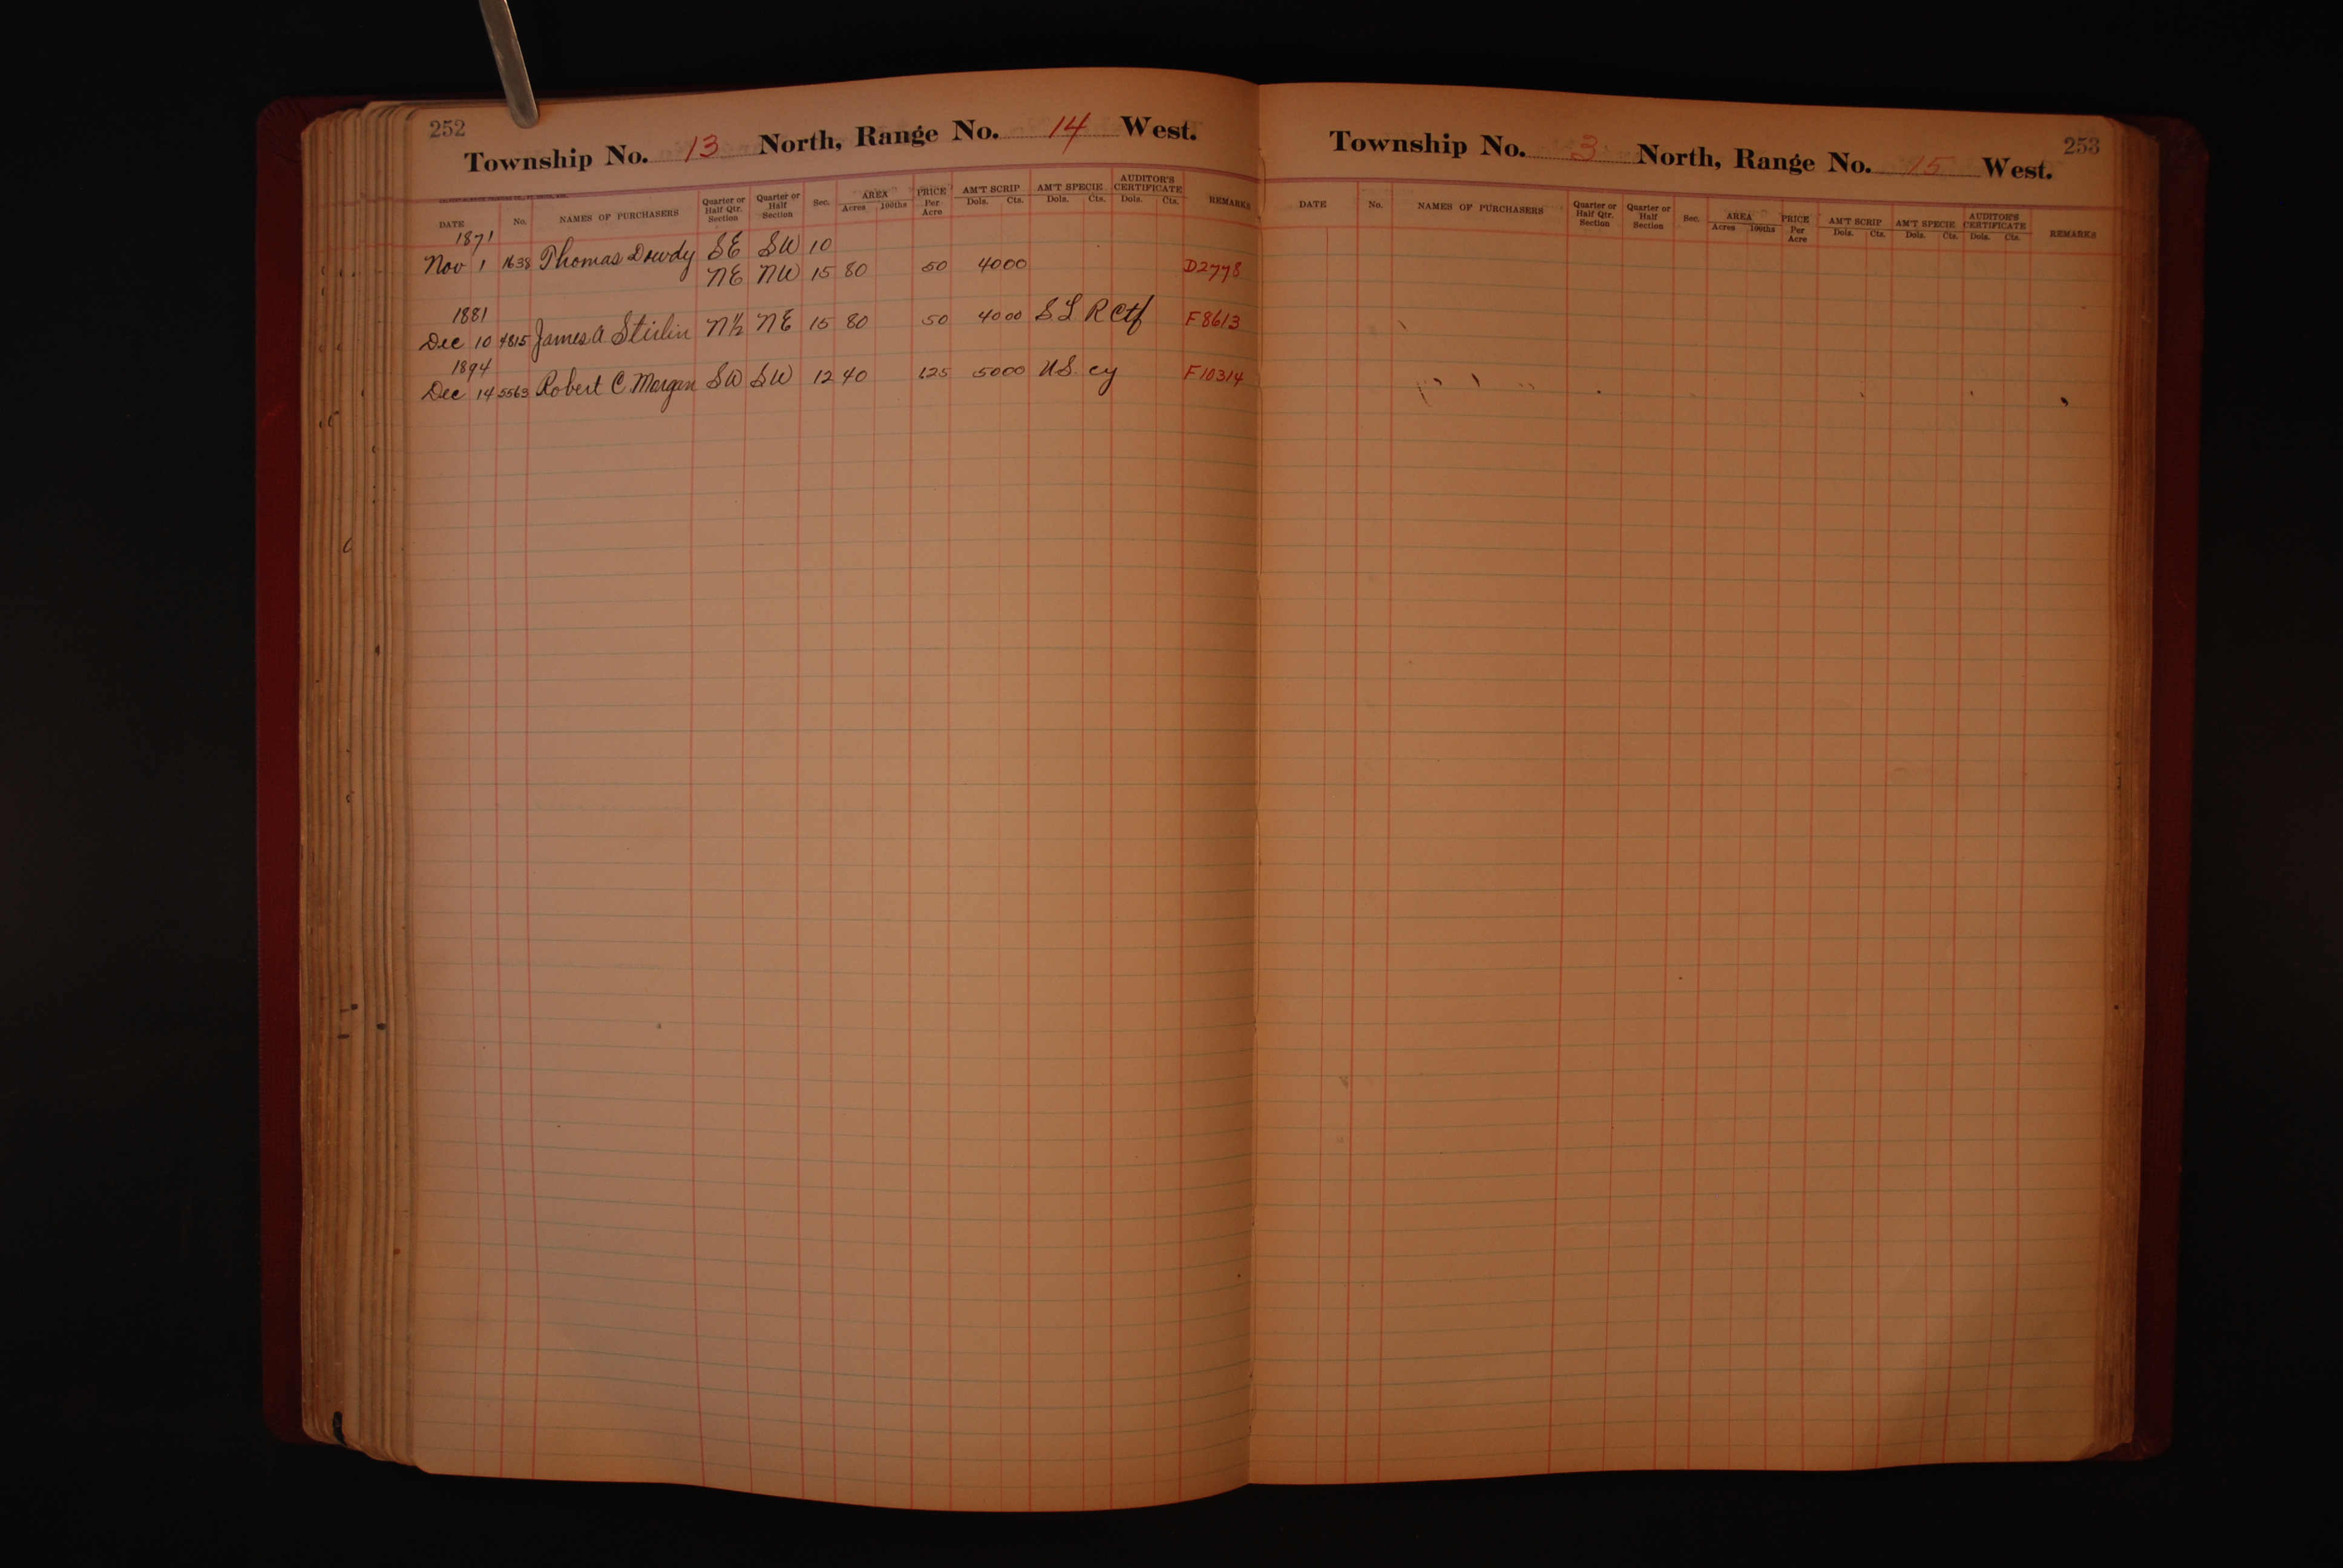 252
Township No. 13 North, Range No. 14 West.
DATE No. NAMES OF PURCHASERS Quarter or Half Qtr. Section Quarter or Half Section Sec. AREA Acres 100ths PRICE Per Acre AM'T SCRIP Dols. Cts. AM'T SPECIE Dols. Cts. AUDITOR'S CERTIFICATE Dols. Cts. REMARKS
1871
Nov 1 1638 Thomas Dowdy SE SW 10
NE NW 15 80 50 4000 D2778
1881
Dec 10 4815 James A Stirlin N½ NE 15 80 50 4000 S L R Ctf F8613
1894
Dec 14 5563 Robert C Morgan SW SW 12 40 125 5000 US. cy F10314
253
Township No. 3 North, Range No. 15 West.
DATE No. NAMES OF PURCHASERS Quarter or Half Qtr. Section Quarter or Half Section Sec. AREA Acres 100ths PRICE Per Acre AM'T SCRIP Dols. Cts. AM'T SPECIE Dols. Cts. AUDITOR'S CERTIFICATE Dols. Cts. REMARKS